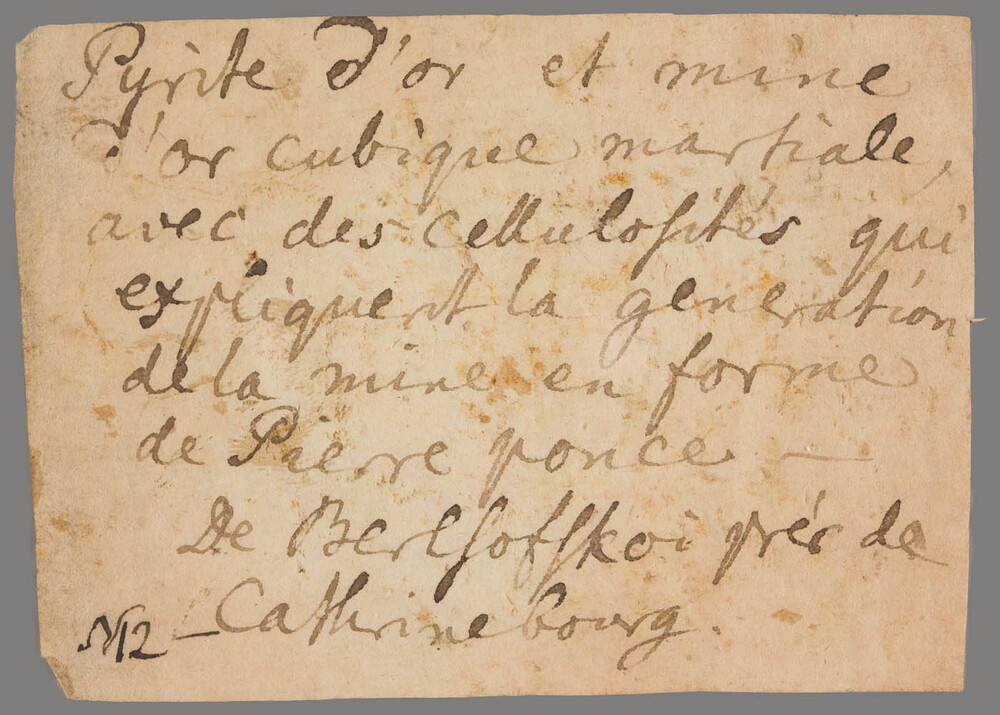 Pyrite d'or et mine
d'or cubique martiale,
avec des cellulosités qui
expliquent la generation
de la mine en forme
de Pierre ponce —
De Beresofskoi prés de
Cathrinebourg.
N12